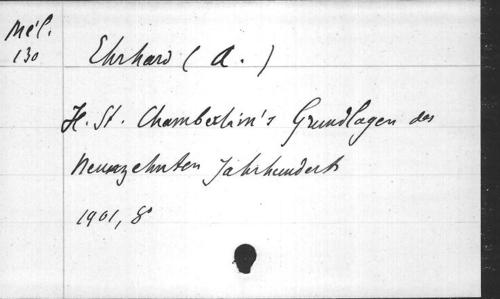 Mél.
130
Ehrhard (A.)
H. St. Chamberlin's Grundlagen des
Neunzehnten Jahrhunderts
1901, 8°